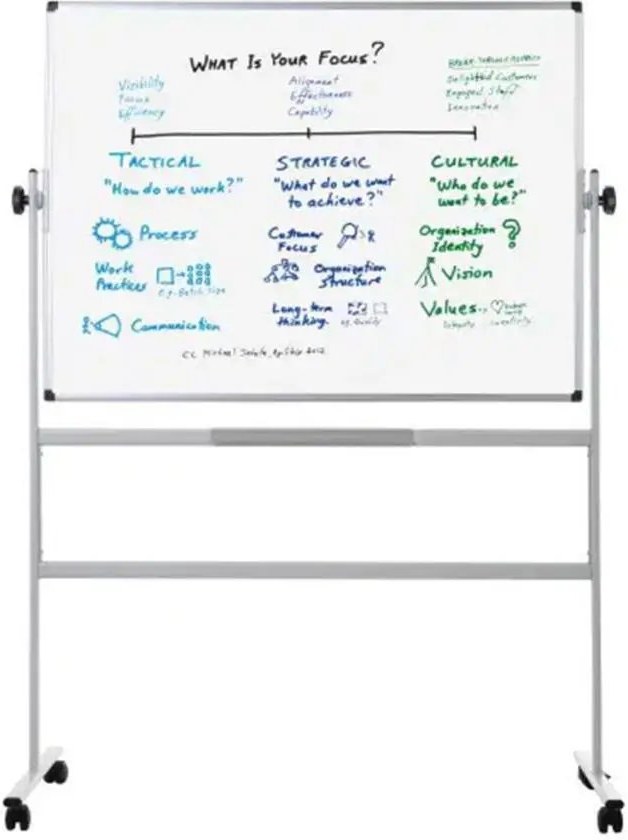 WHAT IS YOUR FOCUS?
Visibility
Focus
Efficiency
Alignment
Effectiveness
Capability
Delighted Customers
Engaged Staff
Innovation
TACTICAL
"How do we work?"
Process
Work
Practices
e.g. Batch Size
Communication
STRATEGIC
"What do we want
to achieve?"
Customer
Focus
Organization
Structure
Long-term
thinking
eg. Quality
CULTURAL
"Who do we
want to be?"
Organization
Identity
Vision
Values..
CC
2012